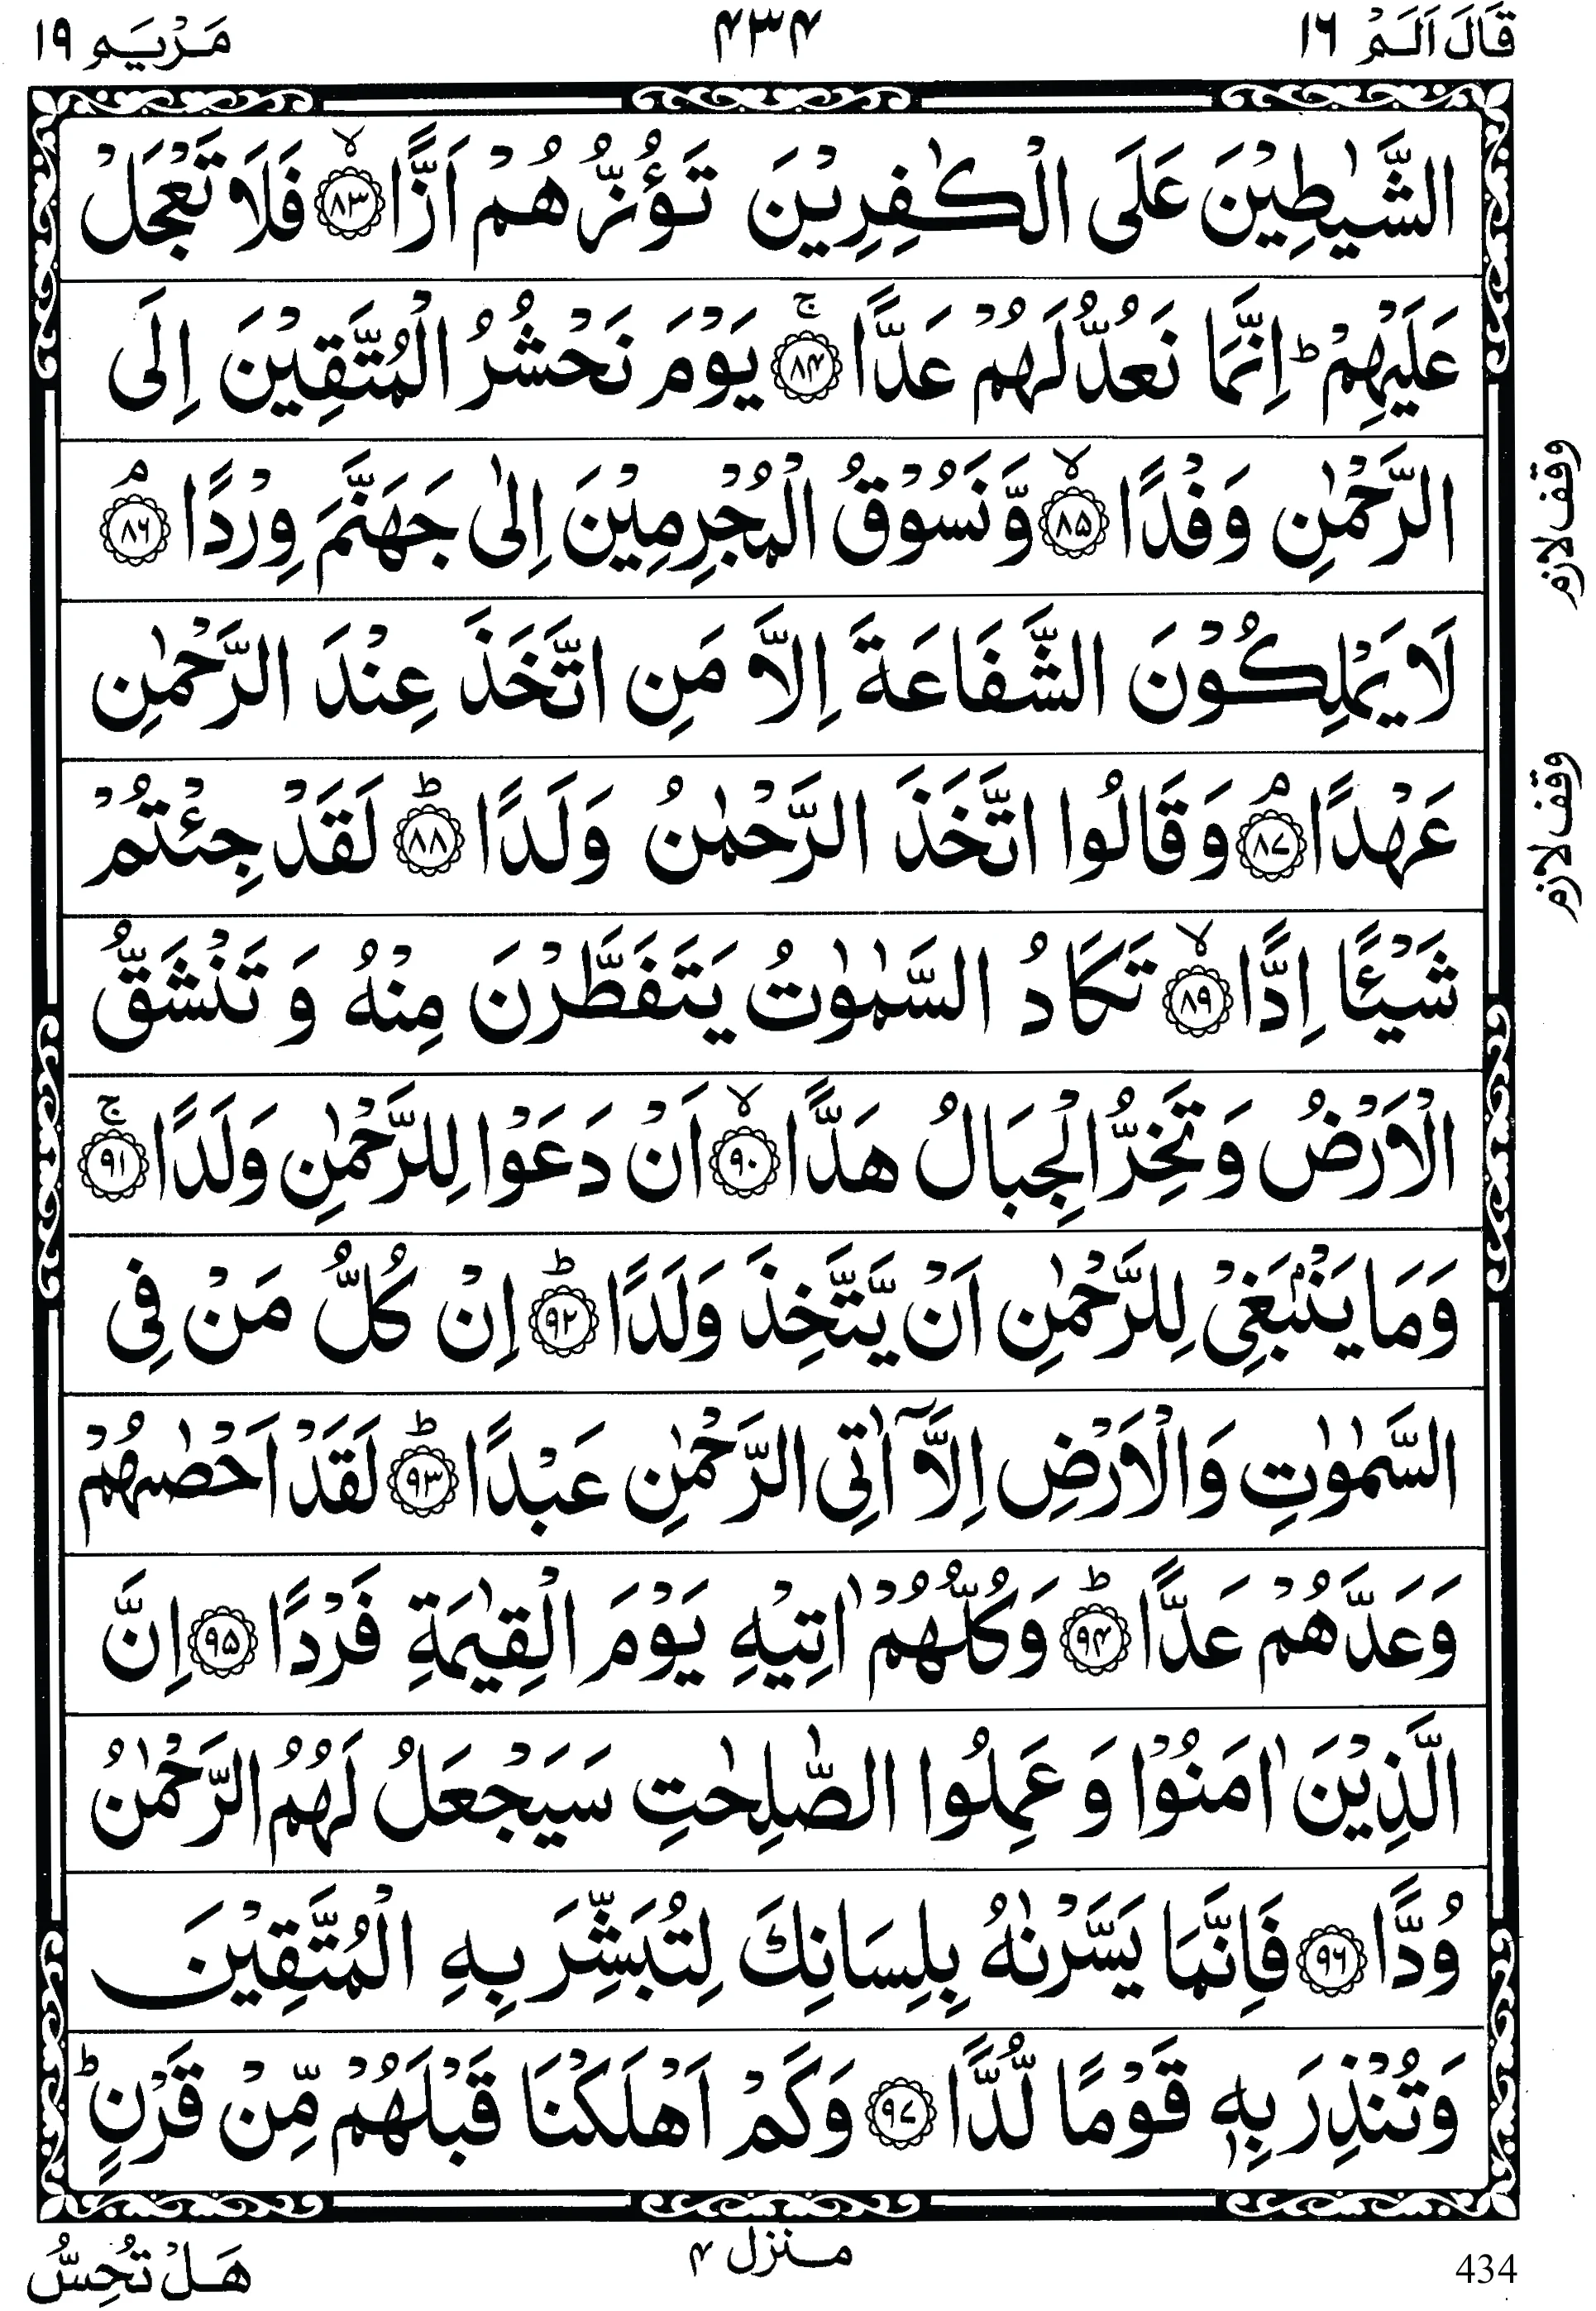 قَالَ اَلَمْ ١٦
۴۳۴
مَرْيَم ١٩
الشَّيٰطِيْنَ عَلَى الْكٰفِرِيْنَ تَؤُزُّهُمْ اَزًّا ۙ‏﴿۸۳﴾ فَلَا تَعْجَلْ
عَلَيْهِمْ ؕ اِنَّمَا نَعُدُّ لَهُمْ عَدًّا ۚ‏﴿۸۴﴾ يَوْمَ نَحْشُرُ الْمُتَّقِيْنَ اِلَى
الرَّحْمٰنِ وَفْدًا ۙ‏﴿۸۵﴾ وَّنَسُوْقُ الْمُجْرِمِيْنَ اِلٰى جَهَنَّمَ وِرْدًا ۘ‏﴿۸۶﴾
وقف لازم
لَا يَمْلِكُوْنَ الشَّفَاعَةَ اِلَّا مَنِ اتَّخَذَ عِنْدَ الرَّحْمٰنِ
عَهْدًا ۘ‏﴿۸۷﴾ وَقَالُوا اتَّخَذَ الرَّحْمٰنُ وَلَدًا ؕ‏﴿۸۸﴾ لَقَدْ جِئْتُمْ
وقف لازم
شَيْـًٔا اِدًّا ۙ‏﴿۸۹﴾ تَكَادُ السَّمٰوٰتُ يَتَفَطَّرْنَ مِنْهُ وَ تَنْشَقُّ
الْاَرْضُ وَ تَخِرُّ الْجِبَالُ هَدًّا ۙ‏﴿۹۰﴾ اَنْ دَعَوْا لِلرَّحْمٰنِ وَلَدًا ۚ‏﴿۹۱﴾
وَمَا يَنْۢبَغِيْ لِلرَّحْمٰنِ اَنْ يَّتَّخِذَ وَلَدًا ؕ‏﴿۹۲﴾ اِنْ كُلُّ مَنْ فِى
السَّمٰوٰتِ وَالْاَرْضِ اِلَّاۤ اٰتِى الرَّحْمٰنِ عَبْدًا ؕ‏﴿۹۳﴾ لَقَدْ اَحْصٰىهُمْ
وَعَدَّهُمْ عَدًّا ؕ‏﴿۹۴﴾ وَكُلُّهُمْ اٰتِيْهِ يَوْمَ الْقِيٰمَةِ فَرْدًا ‏﴿۹۵﴾ اِنَّ
الَّذِيْنَ اٰمَنُوْا وَ عَمِلُوا الصّٰلِحٰتِ سَيَجْعَلُ لَهُمُ الرَّحْمٰنُ
وُدًّا ‏﴿۹۶﴾ فَاِنَّمَا يَسَّرْنٰهُ بِلِسَانِكَ لِتُبَشِّرَ بِهِ الْمُتَّقِيْنَ
وَتُنْذِرَ بِهٖ قَوْمًا لُّدًّا ‏﴿۹۷﴾ وَكَمْ اَهْلَكْنَا قَبْلَهُمْ مِّنْ قَرْنٍ ؕ
هَلْ تُحِسُّ
منزل ۴
434